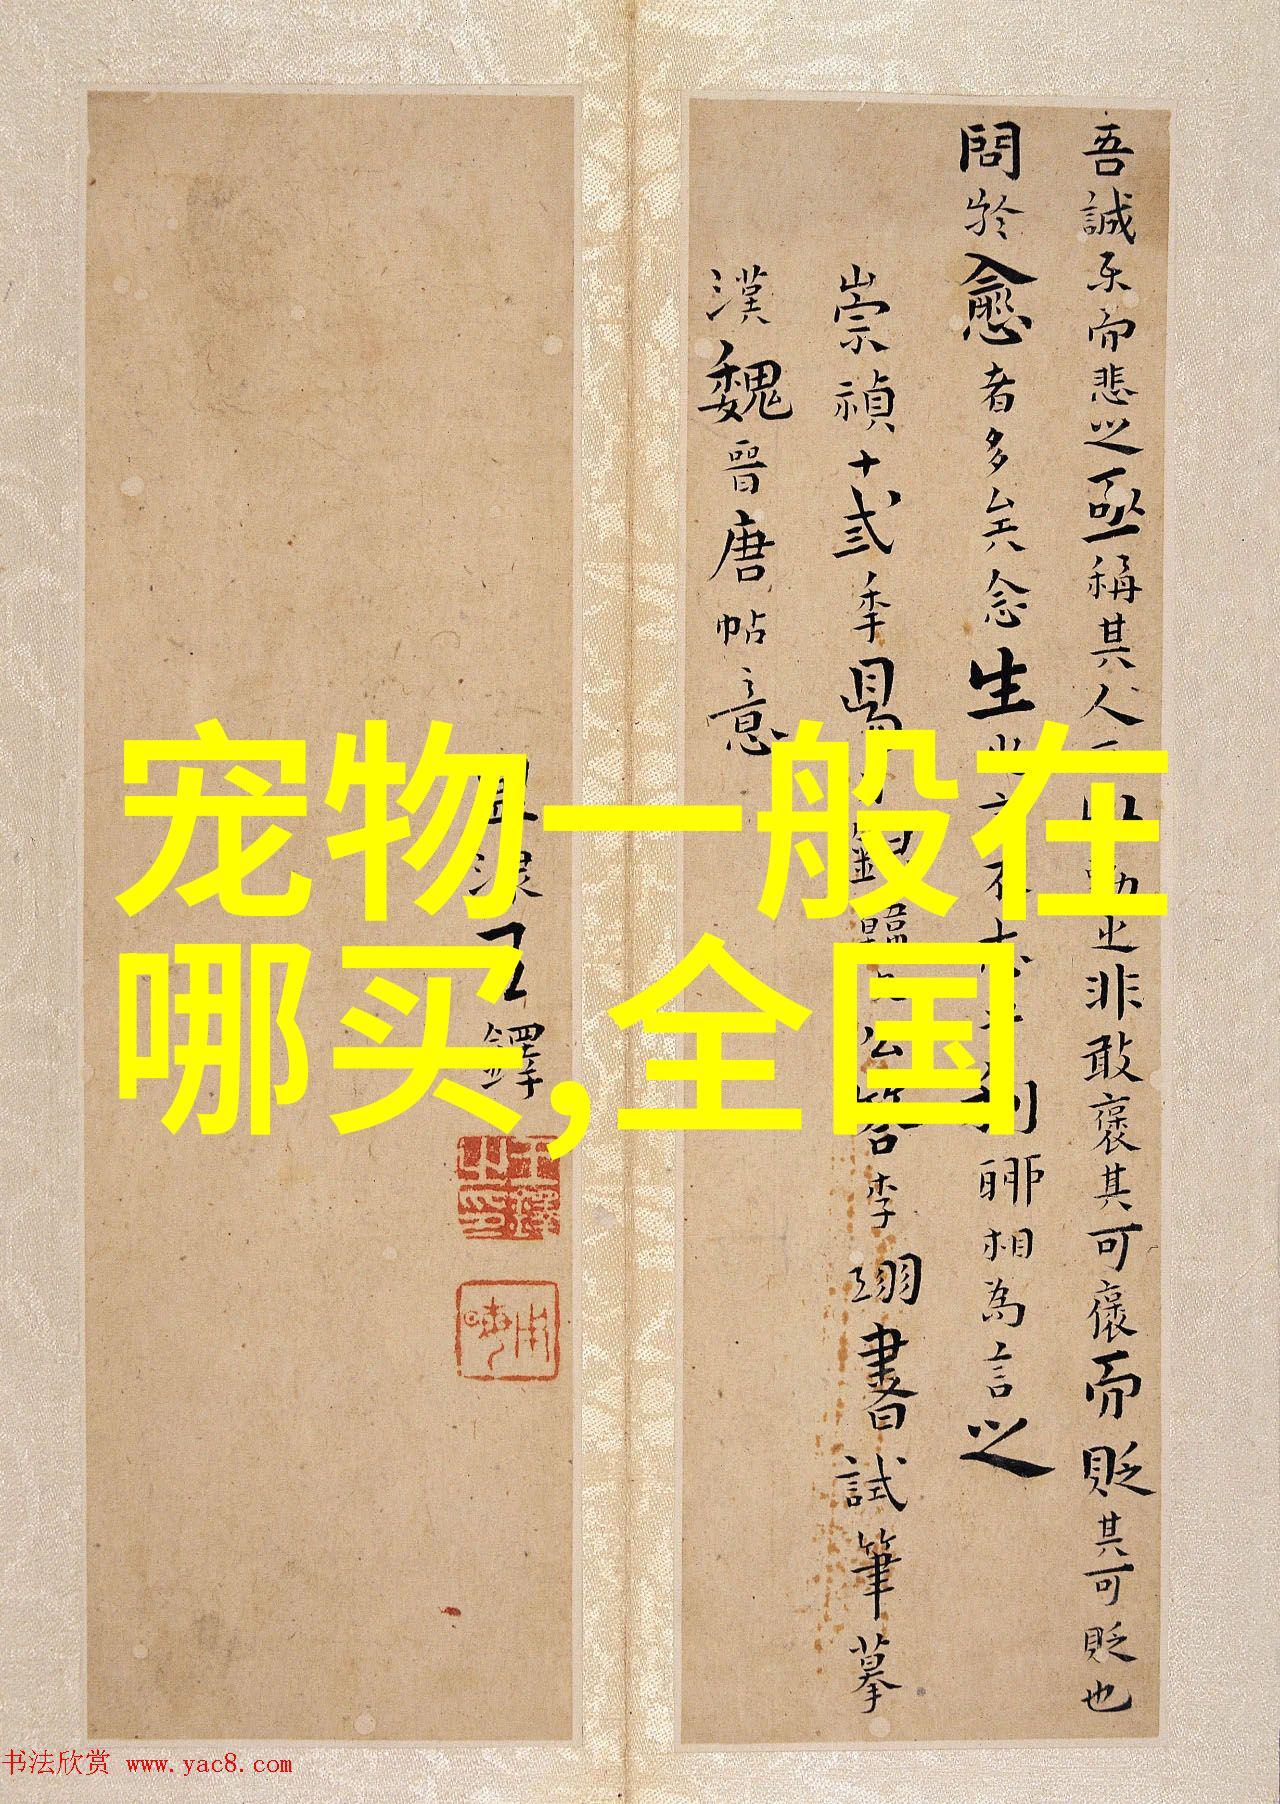 吾誠樂而悲之亟稱其人
之非敢褒其可褒而貶其可貶也
問於愈者多矣念生
聊相為言之
崇禎十貳年
公答李翊書試筆摹
漢魏晉唐帖意
王鐸
宠物一般在
哪买,全国
书法欣赏 www.yac8.com